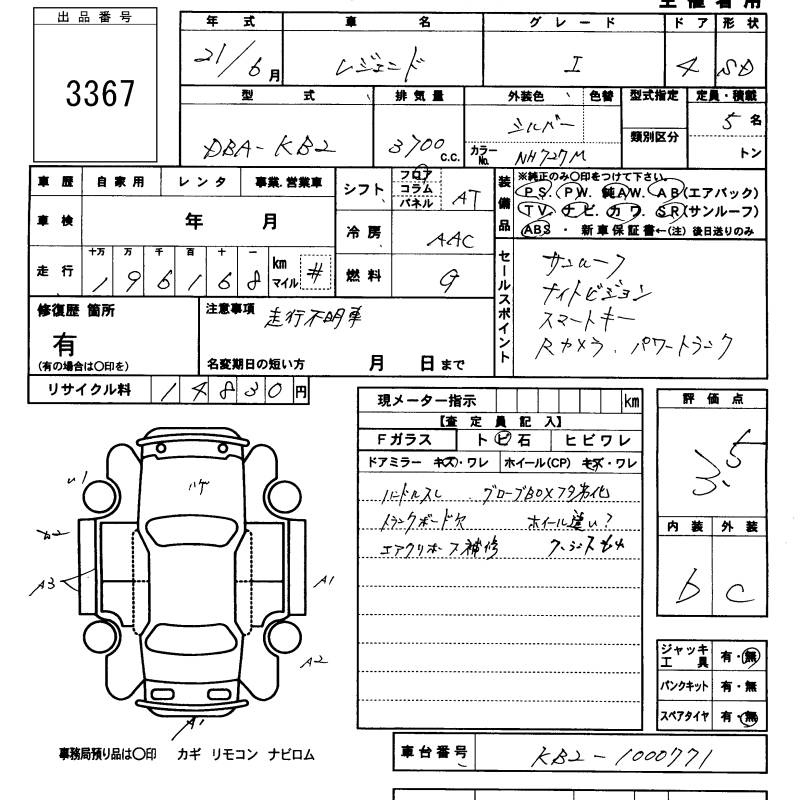 出品番号
3367
年式 車名 グレード ドア 形状
21/6月 レジェンド I 4 SD
型式 排気量 外装色 色替 型式指定 定員・積載
DBA-KB2 3700 c.c. シルバー 類別区分 5名
カラーNo. NH727M トン
車歴 自家用 レンタ 事業.営業車
車検 年 月
走行 十万 万 千 百 十 一
196168 km マイル #
シフト フロア コラム パネル AT
冷房 AAC
燃料 G
装備品
※純正のみ〇印をつけて下さい。
PS. PW. 純AW. AB(エアバック)
TV. ナビ. カワ. SR(サンルーフ)
ABS ・ 新車保証書←(注) 後日送りのみ
セールスポイント
サンルーフ
ナイトビジョン
スマートキー
Rカメラ. パワートランク
修復歴 箇所
有
(有の場合は〇印を)
注意事項 走行不明車
名変期日の短い方 月 日まで
リサイクル料 14830円
現メーター指示 km
【査定員記入】
Fガラス トビ石 ヒビワレ
ドアミラー キズ・ワレ ホイール(CP) キズ・ワレ
ハンドルスレ グローブBOXフタ劣化
トランクボード欠 ホイール違い?
エアクリホース補修
評価点
3.5
内装 外装
b c
ハゲ
A3
A1
A2
A1
ジャッキ工具 有・無
パンクキット 有・無
スペアタイヤ 有・無
事務局預り品は〇印 カギ リモコン ナビロム
車台番号 KB2-1000771